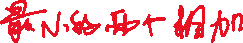 最小的两个相加